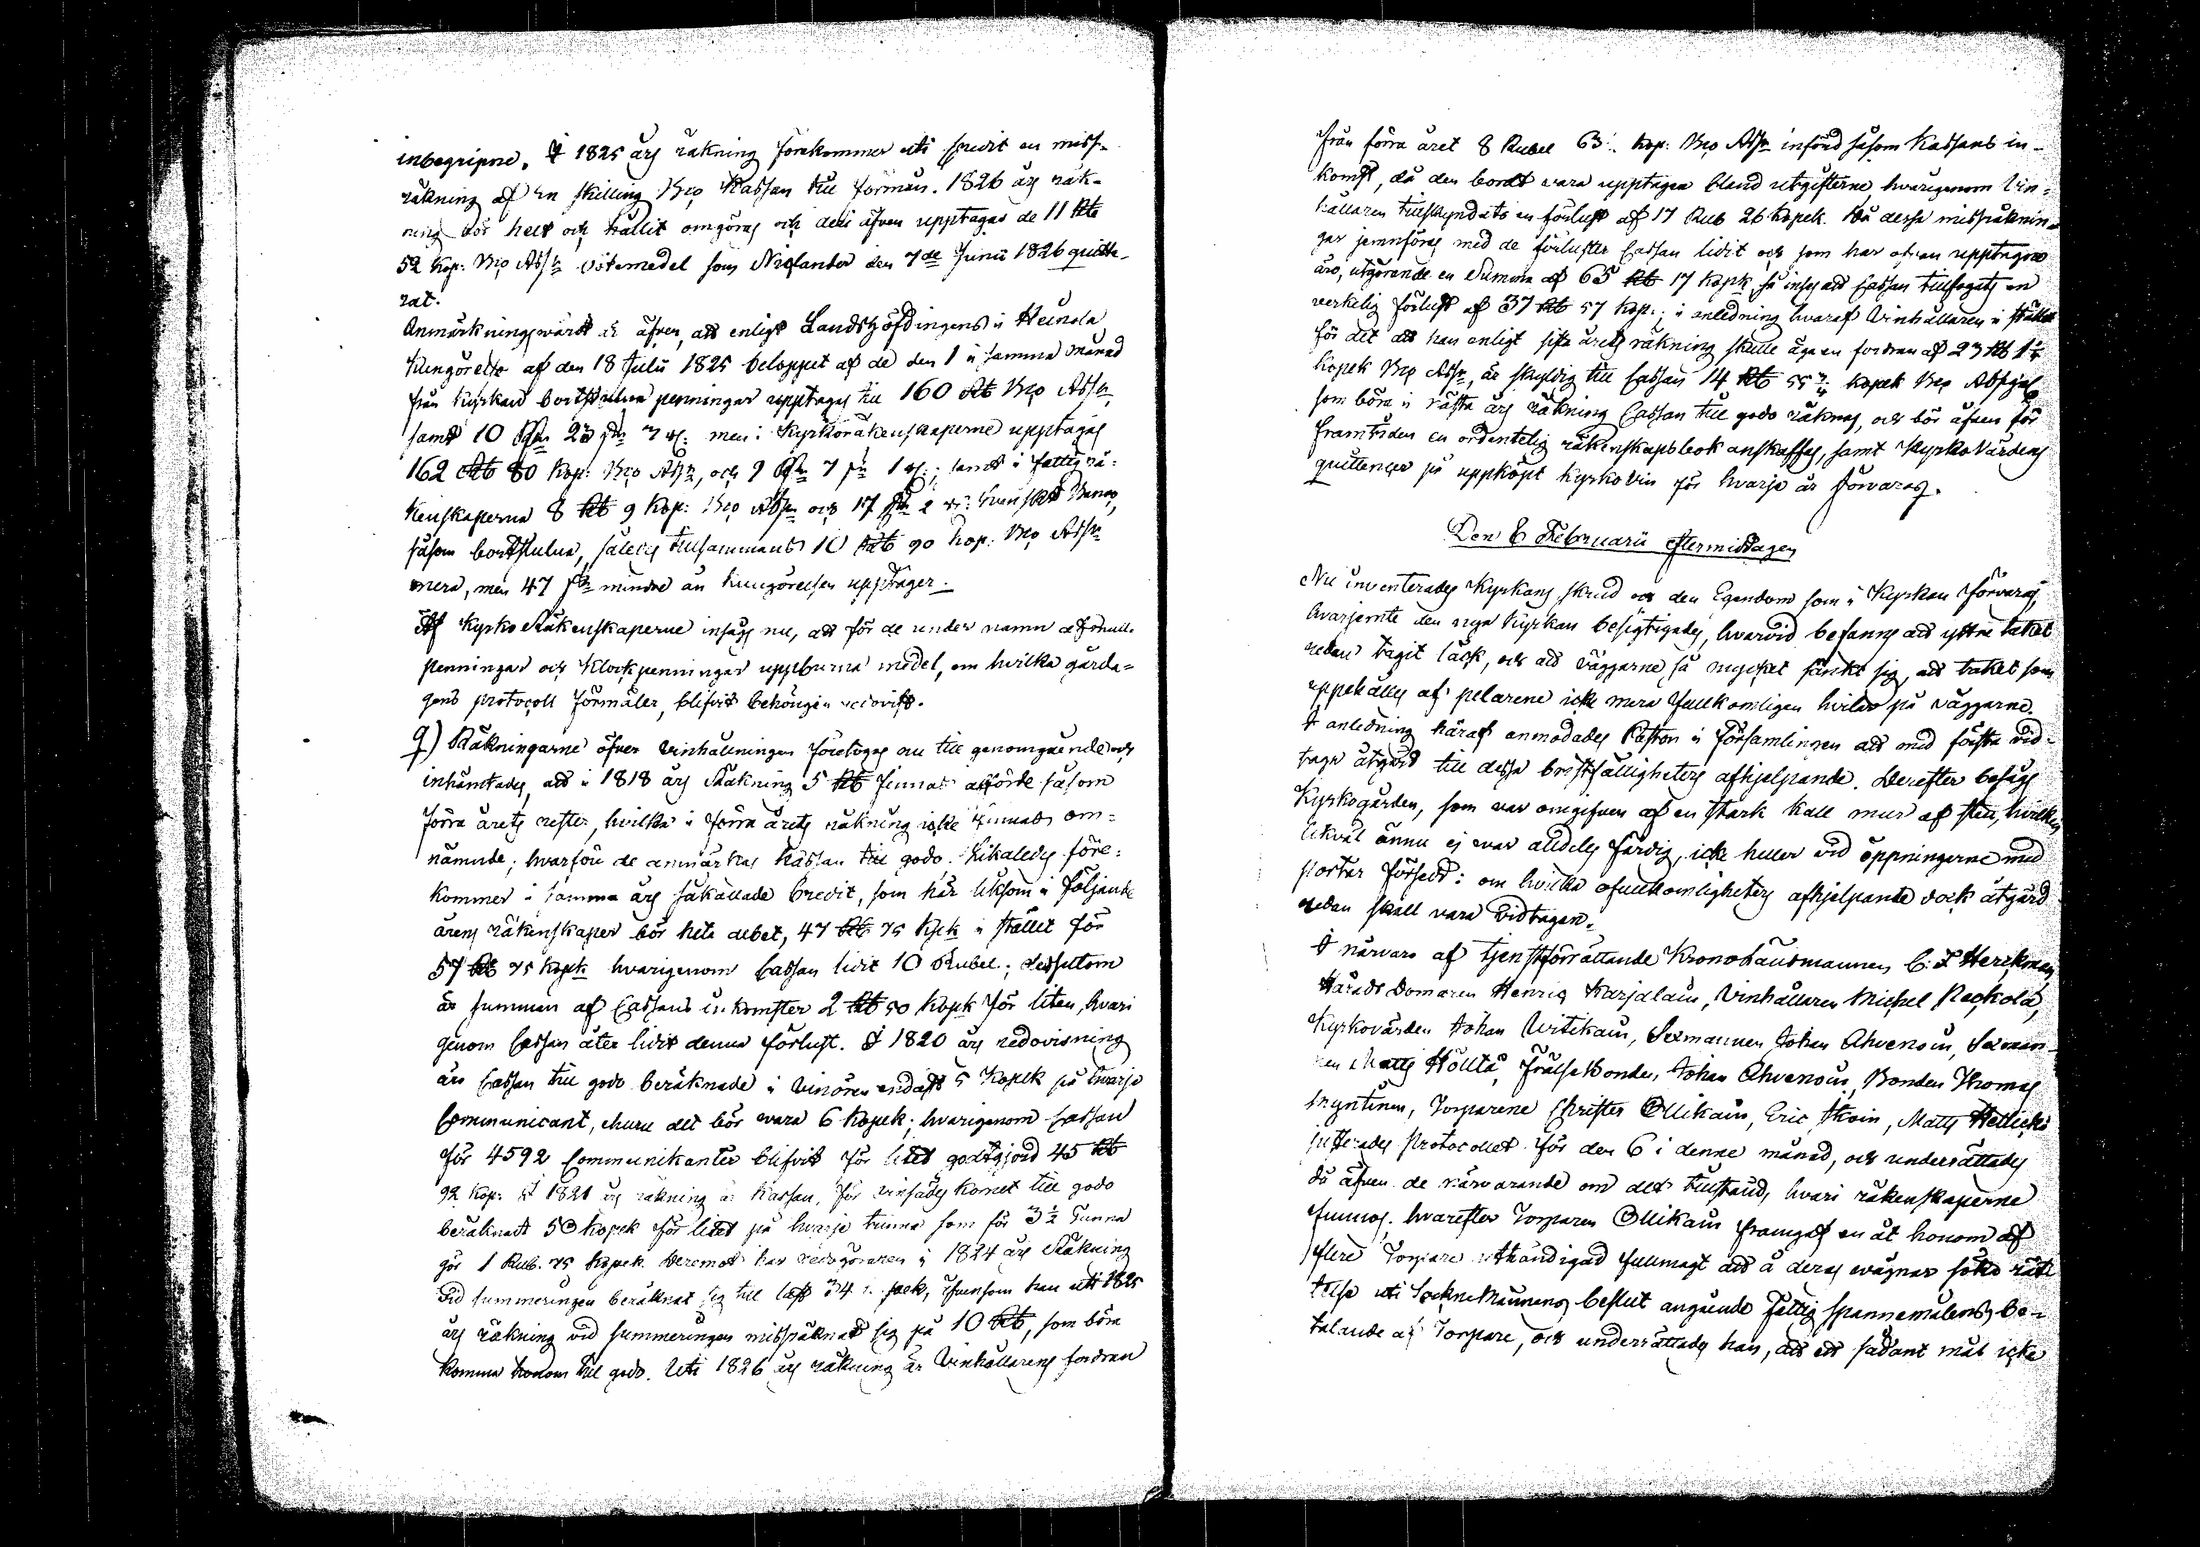 inbegripne. I 1825 års räkning förekommer uti credit en miss-
räkning af en skilling Bco Kassan till förmån. 1826 års räk-
ning bör helt och hållit omgöras och deri äfven upptagas de 11 Rb
52 Kop: Bco Assn: botsmedel som Nielander den 7de Junii 1826 quitte-
rat.
Anmärkningswärdt är äfven, att enligt Landshöfdingens i Heinola
Kungörelse af den 18 Julii 1825 beloppet af de den 1 i samma månad
från Kyrkan bortstulna penningar upptages till 160 Rb Bco Assn
samt 10 Rdr 23 sk 7 rs: men i Kyrkoräkenskaperne upptagas
162 Rb 80 Kop: Bco Assn, och 9 Rdr 7 sk 1 rs; samt i fattigrä-
kenskaperna 8 Rb 9 Kop: Bco Assn och 17 sk 2 rs: Svenskt Banco,
såsom bortstulna, således tillsammans 10 Rb 90 Kop: Bco Assn
mera, men 47 sk mindre än kungörelsen upptager.
Af Kyrko Räkenskaperne insågs nu, att för de under namn af
penningar och Klockpenningar uppburna medel, om hvilka gårda-
gens protocoll förmäler, blifvit behörigen redovist.
9) Räkningarne öfver vinhållningen företogos nu till genomgående och
inhämtades, att i 1818 års Räkning 5 Rb finnas afförde såsom
förra årets rester, hvilka i förra årets räkning icke finnas om-
nämnde; hvarföre de anmärkas Kassan till godo. Likaledes före-
kommer i samma års såkallade Credit, som här liksom i följande
årens räkenskaper bör heta debet, 47 Rb 75 Kopk i stället för
57 Rb 75 Kopk hvarigenom Cassan lidit 10 Rubel; dessutom
är summan af Cassans inkomster 2 Rb 50 Kopk för liten, hvari
genom Cassan åter lidit denna förlust. I 1820 års redovisning
är Cassan till godo beräknade i Vinören endast 5 Kopek på hvarje
Communicant, ehuru det bör vara 6 Kopek; hvarigenom Cassan
för 4592 Communikanter blifvit för litet godtgjord 45 Rb
92 Kop: I 1821 års räkning är Kassan, för vinsädes kornet till godo
beräknadt 50 kopek för litet på hvarje tunna som för 3 1/2 Tunna
gör 1 Rub. 75 Kopek. Deremot har redogöraren i 1824 års Räkning
vid summeringen beräknat sig till last 34 kopek, äfvensom han uti 1825
års räkning vid summeringen missräknat sig på 10 Rb, som böra
komma honom till godo. Uti 1826 års räkning är Vinhållarens fordran
från förra året 8 Rubel 63 Kop: Bco Assn införd såsom Kassans in-
komst, då den bordt vara upptagen bland utgifterne hvarigenom Vin-
hållaren tillskyndats en förlust af 17 Rub 26 Kopek. Då dessa missräknin-
gar jemnföras med de förluster Cassan lidit och som här ofvan upptagne
äro, utgörande en Summa af 65 Rb 17 Kopk så inses att Cassan tillfogats en
verkelig förlust af 37 Rb 57 Kop:; i anledning hvaraf Vinhållaren i stället
för det att han enligt sista årets räkning skulle äga en fordran af 23 Rb
kopek Bco Assn, är skyldig till Cassan 14 Rb 55 kopek Bco
som böra i nästa års räkning Cassan till godo räknas, och bör äfven för
framtiden en ordentelig räkenskapsbok anskaffas, samt Kyrko Värdens
quittencer på uppköpt Kyrkovin för hvarje år förvaras.
Den 6 Februarii eftermiddagen
Nu inventerades Kyrkans skrud och den Egendom som i Kyrkan förvaras,
hvarjemte den nya Kyrkan besigtigades, hvarvid befanns att yttre taket
redan tagit läck, och att väggarne så mycket sänkt sig, att taket som
uppehålles af pelarene icke mera fullkomligen hvilar på väggarne.
I anledning häraf anmodades Pastorn i församlingen att med första vid-
taga åtgärd till dessa bristfälligheters afhjelpande. Derefter besågs
Kyrkogården, som var omgifven af en stark kall mur af sten, hvilken
likväl ännu ej war alldeles färdig, icke heller vid öppningarne med
portar försedd: om hvilka ofullkomligheters afhjelpande dock åtgärd
redan skall vara vidtagen.
I närvaro af tjenstförrättande Kronolänsmannen C: F Herckman
Härads Domaren Henric Karjalain, Vinhållaren Michel
Kyrkovärden Johan Urtikain, Sexmannen Johan Ahvenoin, Sexman-
nen Matts Hölttä, Frälse Bonden, Johan Ahvenoin, Bonden Thomas
Torparene Christer Ollikain, Eric Ikoin, Matts
justerades Protocollet för den 6 i denne månad, och underrättades
då äfven de närvarande om det tillstånd, hvari räkenskaperne
funnos; hvarefter Torparen Ollikain framgaf en åt honom af
flere Torpare uthändigad fullmagt att å deras vägnar söka rätt
telse uti Sockne Männens beslut angående Fattig spannemålens be-
talande af Torpare, och underrättades han, att ett sådant mål icke